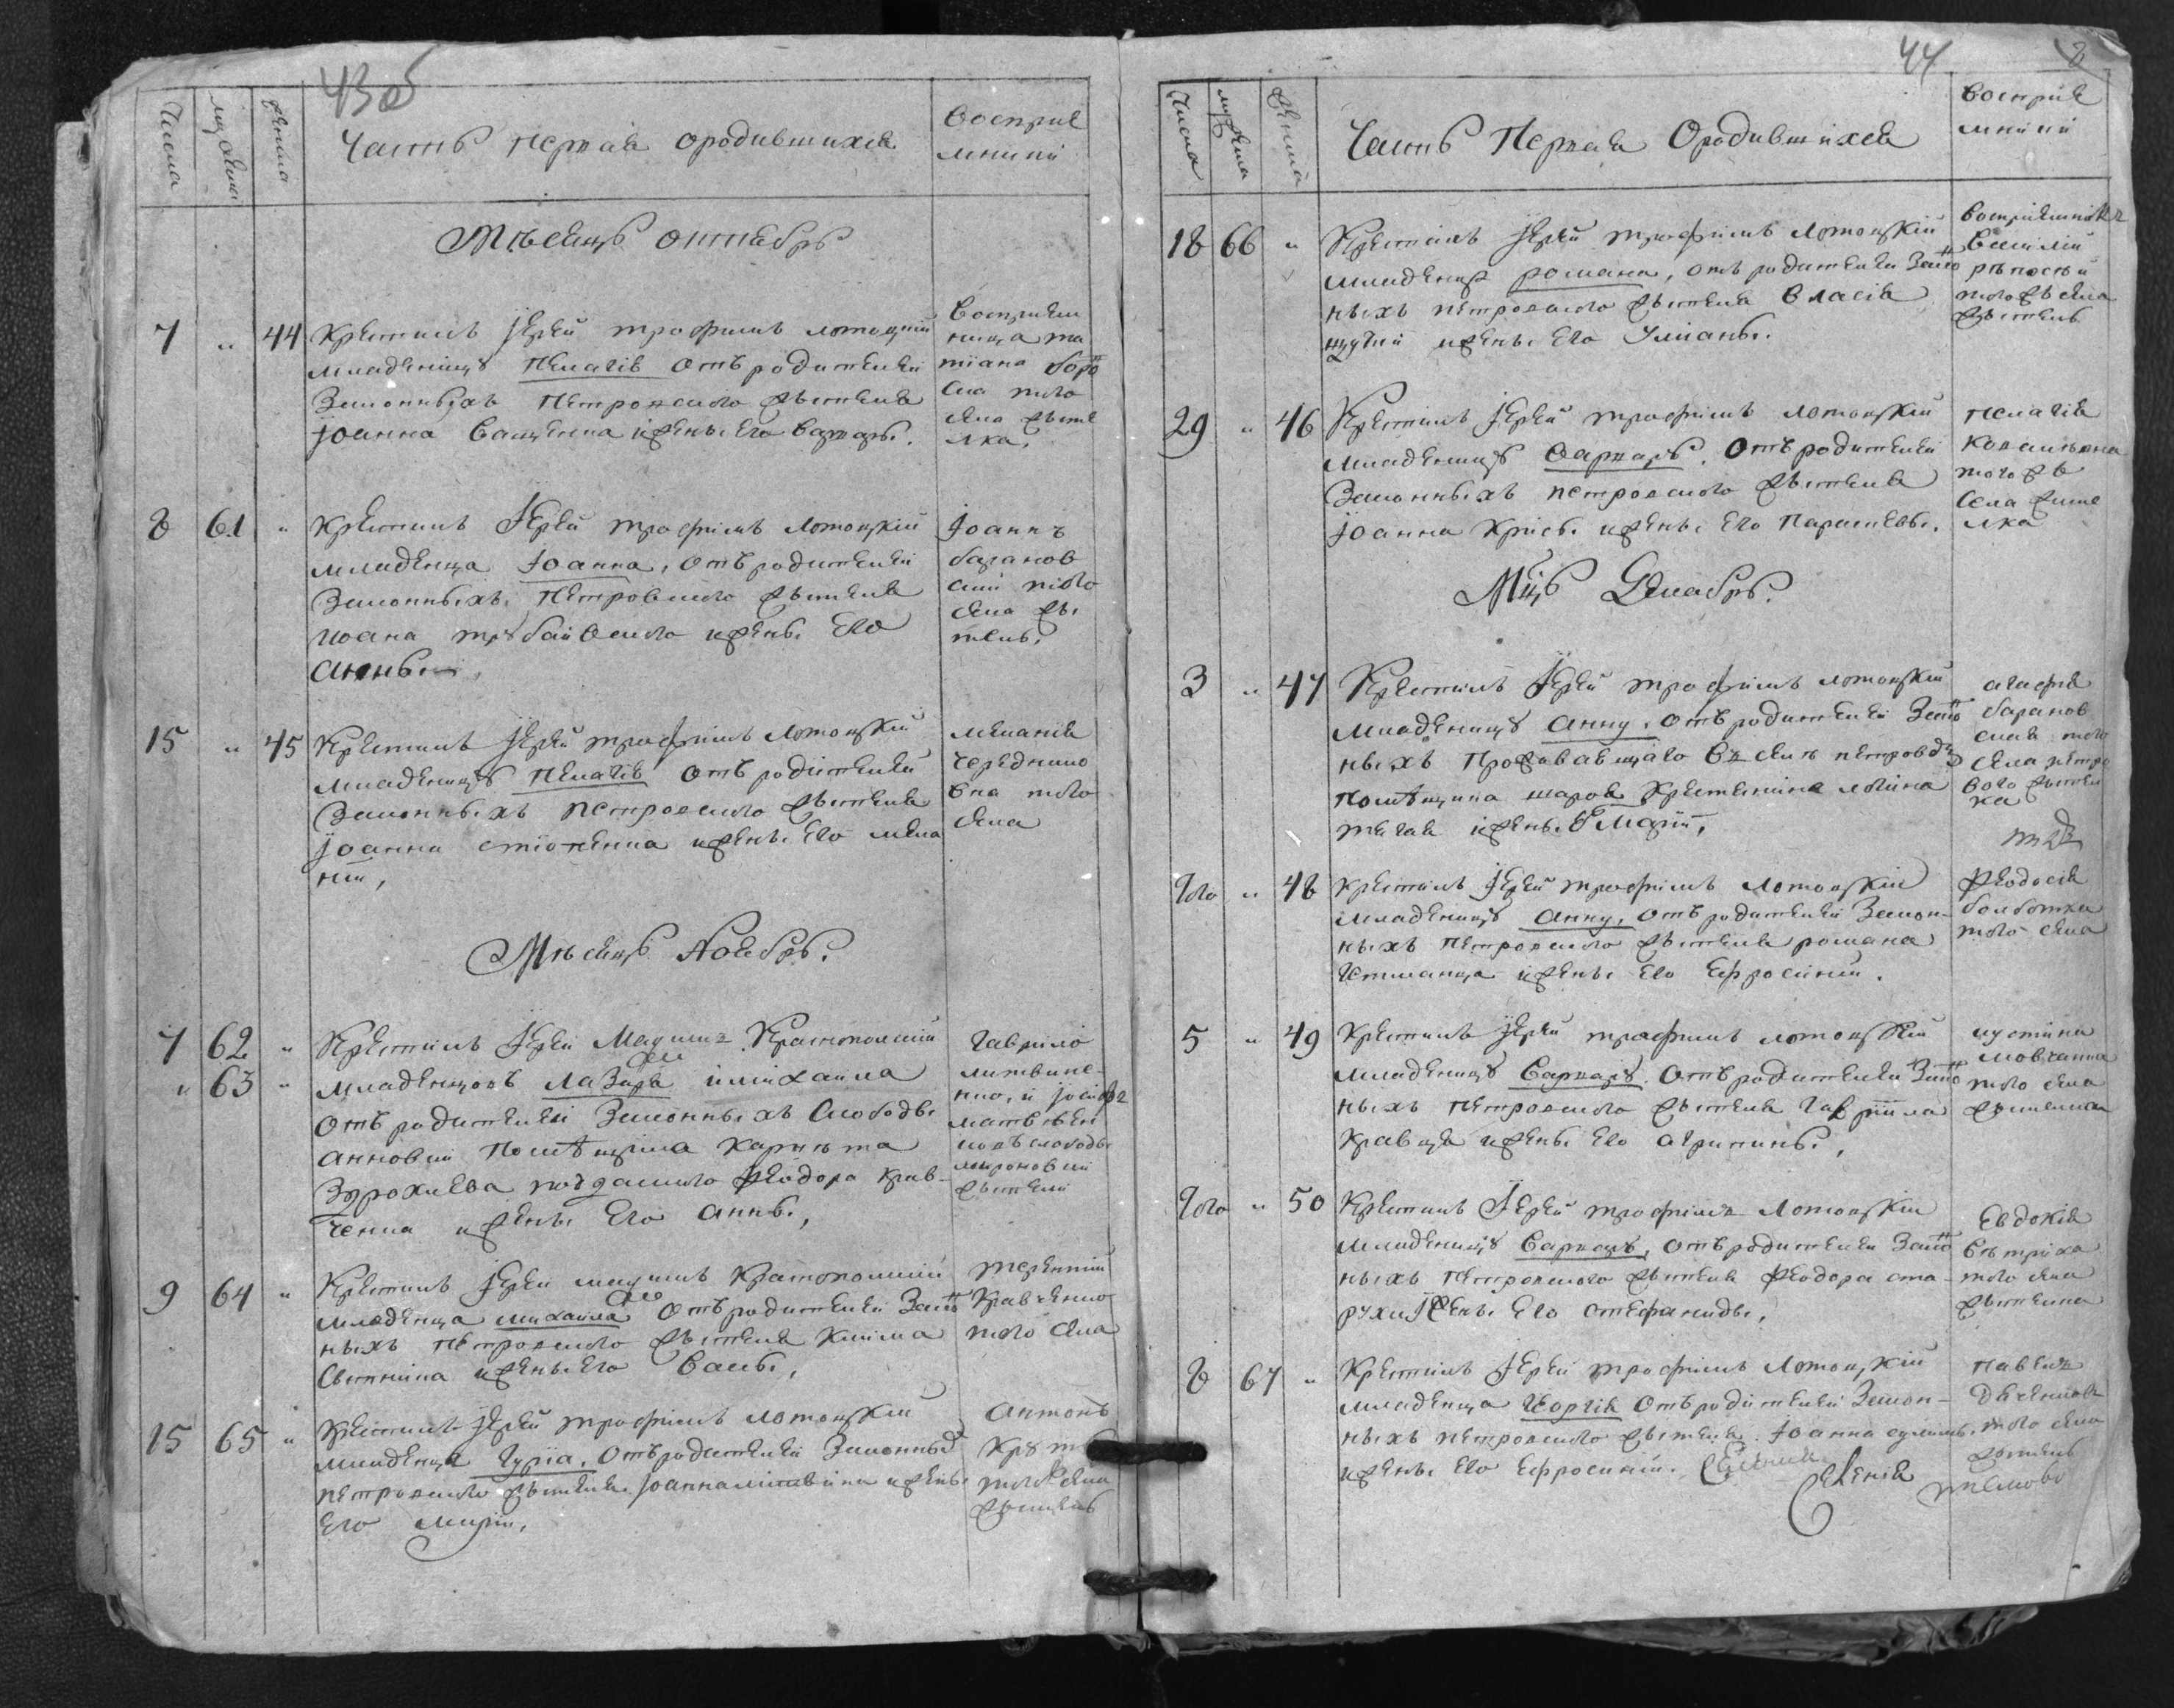 43об
Числа
мужеска
женска
Часть первая ородившихся
Восприе
мники
Мѣсяцъ октябръ
7 " 44
Крестилъ Іерей трофимъ лотоцкий
младеницу Пелагію отъ родителей
Законныхъ Петровского жителя
Іоанна Ващенка ижены его варвары.
Восприем
ница та
тіана
того
села жите
лка.
8 61 "
Крестилъ Іерей трофимъ лотоцкій
младенца Іоанна, отъ родителей
Законныхъ, Петровского жителя
иоана ижены его
Анны
Іоаннъ
баранов
ский того
села жи
тель,
15 " 45
Крестилъ Іерей трофимъ лотоцкій
младеницу Пелагію отъ родителей
Законныхъ петровского жителя
Іоанна ижены его мела
нии,
меланія
череднико
вна того
села
Мѣсяцъ Ноябръ.
7 62 "
" 63 "
Крестилъ Іерей Максимъ Краснопольскій
младенцовъ лазаря имихаила
отъ родителей Законныхъ Слободы
анновки Помѣщика
подданного Феодора Крав-
ченка ижены его анны,
Гаврило
литвине-
нко, и
слободы
мироновки
жители
9 64 "
Крестилъ Іерей максимъ Краснопольскій
младенца михаила отъ родителей Закон
ныхъ петровского жителя Клима
ижены его
терентий
Кравченко
того села
15 65 "
Крестилъ Іерей трофимъ лотоцкій
младенца Гурія, отъ родителей Законных
петровского жителя Іоанна литвина ижены
его марии,
Антонъ
того села
житель
44
8
Числа
мужеска
женска
Часть Первая Ородившихся
Восприе
мники
18 66 "
Крестилъ Іерей трофимъ лотоцкій
младенца романа, отъ родителей Закон
ныхъ петровского жителя Власія
ижены его Уліаны.
восприемникъ
Василій
того села
житель
29 " 46
Крестилъ Іерей трофимъ лотоцкій
младеницу Варвару. Отъ родителей
Законныхъ петровского жителя
Іоанна ижены его Параскевы.
пелагія
ковалювна
того ж
села жите
лка
Мцъ Декабръ.
3 " 47
Крестилъ Іерей трофимъ лотоцкій
младеницу анну, отъ родителей Закон
ныхъ Проживающаго в селѣ петровском
помѣщика
ижены его Марии,
агафія
баранов
ская того
села петро
вого жител
ка
того " 48
Крестилъ Іерей трофимъ лотоцкій
младеницу анну, отъ родителей Закон-
ныхъ петровского жителя романа
Гетманца ижены его Ефросинии.
Феодосія
болботка
того села
5 " 49
Крестилъ Іерей трофимъ лотоцкій
младеницу Варвару. Отъ родителей Закон
ныхъ петровского жителя Гавріила
Кравца ижены его агрипины,
иустина
мовчанка
того села
жителка
того " 50
Крестилъ Іерей трофимъ лотоцкій
младеницу Варвару, отъ родителей Закон
ныхъ петровского жителя Феодора ста-
рухи ижены его стефаниды,
Евдокія
того села
жителка
8 67 "
Крестилъ Іерей трофимъ лотоцкій
младенца Георгія отъ родителей Закон-
ныхъ петровского жителя Іоанна
ижены его Ефросинии.
павелъ
того села
житель